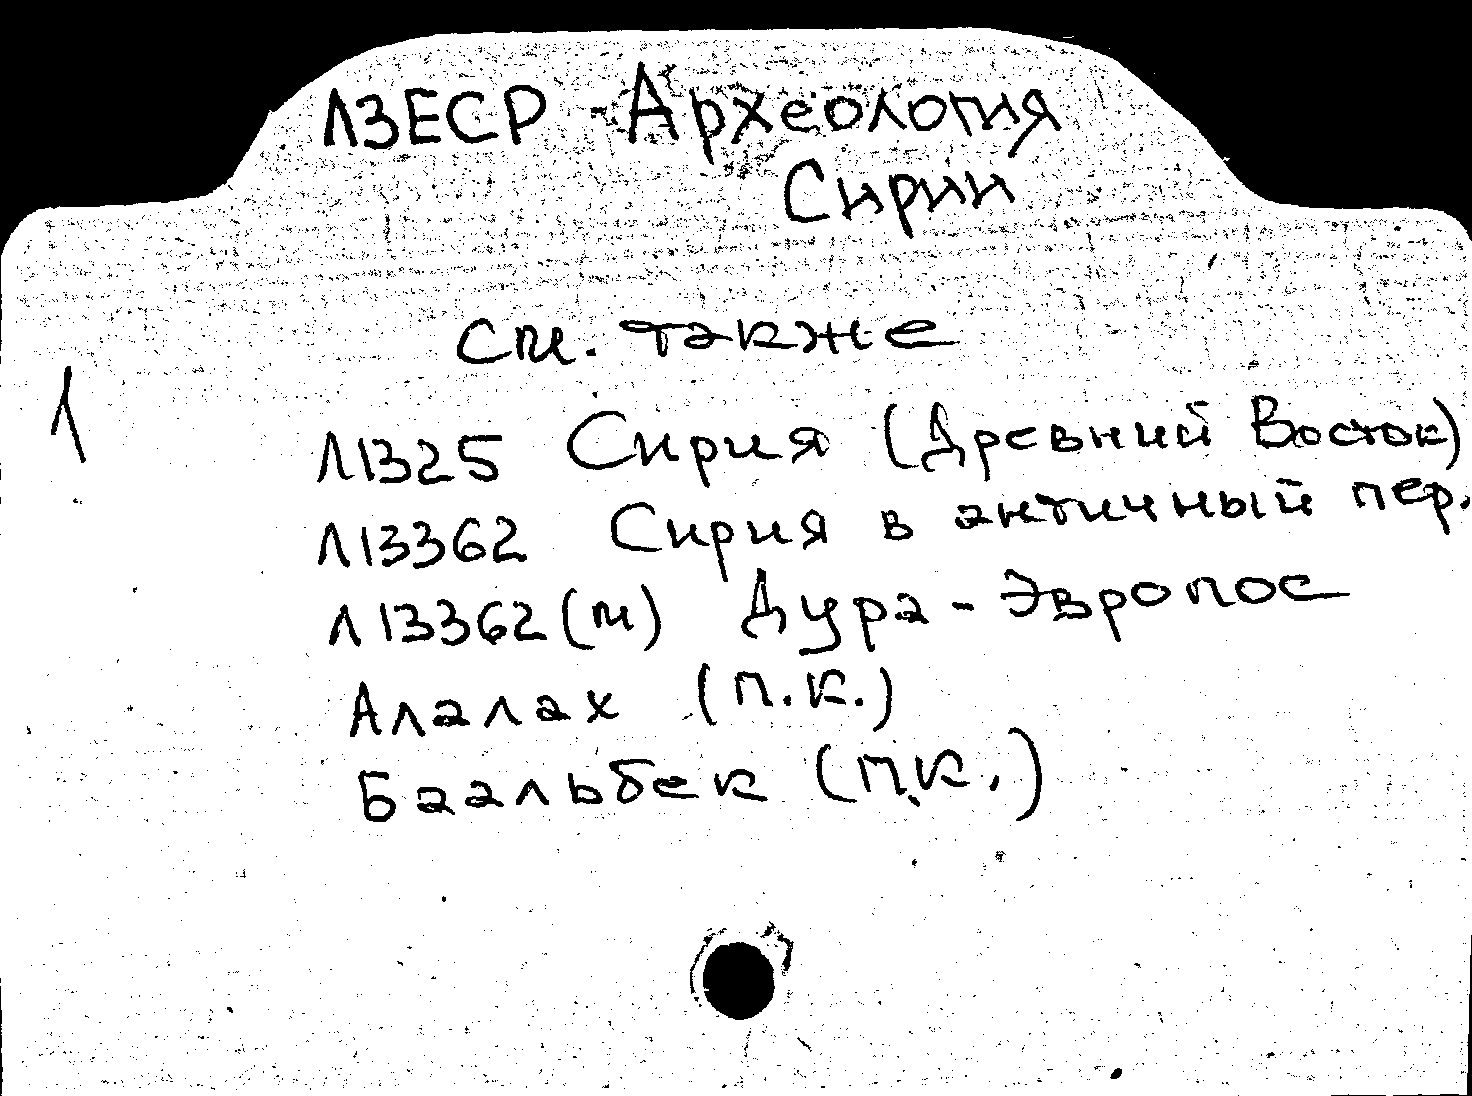 Л3ЕСР - Археология
Сирии
см. также
Л
Л1325 Сирия (Древний Восток)
Л13362 Сирия в античный пер.
Л13362(м) Дура-Эвропос
Алалах (п.к.)
Баальбек (п.к.)